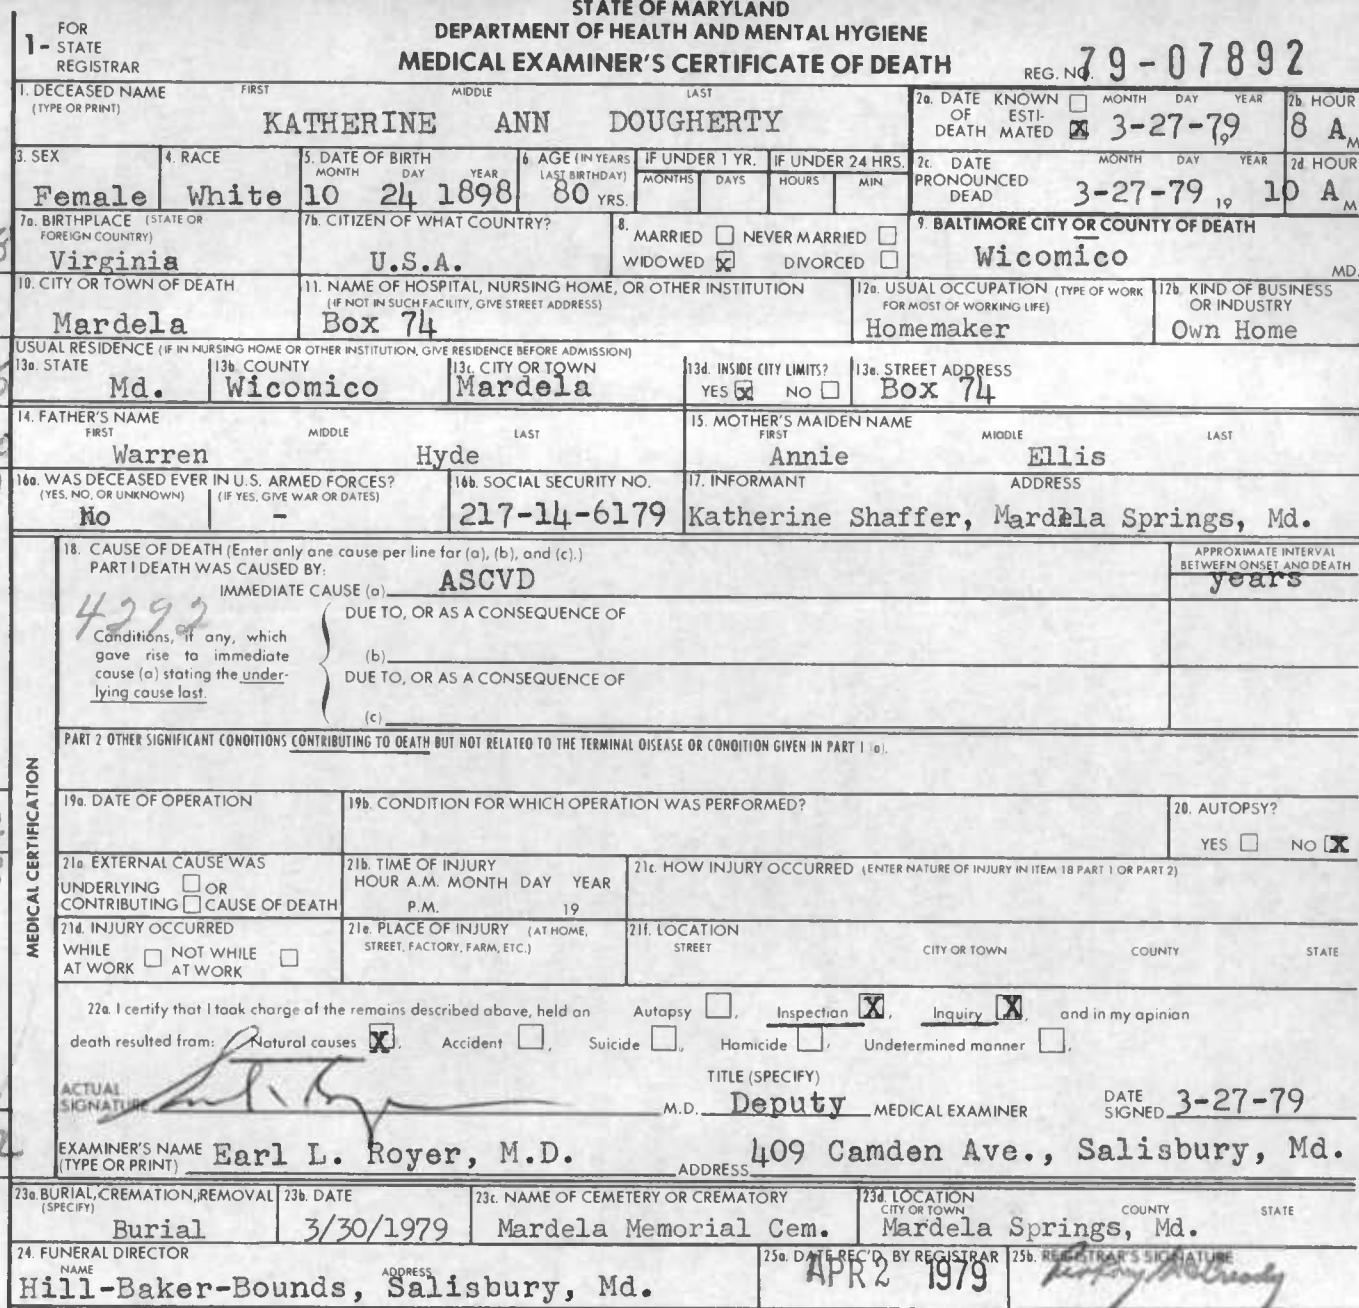 STATE OF MARYLAND
DEPARTMENT OF HEALTH AND MENTAL HYGIENE
MEDICAL EXAMINER'S CERTIFICATE OF DEATH
1 - FOR STATE REGISTRAR
REG. NO. 79-07892
1. DECEASED NAME (TYPE OR PRINT) FIRST MIDDLE LAST
KATHERINE ANN DOUGHERTY
2a. DATE OF DEATH KNOWN ☐ ESTIMATED ☒ MONTH DAY YEAR 3-27-79 19
2b. HOUR 8 A M
3. SEX Female
4. RACE White
5. DATE OF BIRTH MONTH DAY YEAR 10 24 1898
6. AGE (IN YEARS LAST BIRTHDAY) 80 YRS.
IF UNDER 1 YR. MONTHS DAYS
IF UNDER 24 HRS. HOURS MIN
2c. DATE PRONOUNCED DEAD MONTH DAY YEAR 3-27-79 19
2d. HOUR 10 A M
7a. BIRTHPLACE (STATE OR FOREIGN COUNTRY) Virginia
7b. CITIZEN OF WHAT COUNTRY? U.S.A.
8. MARRIED ☐ NEVER MARRIED ☐
WIDOWED ☒ DIVORCED ☐
9. BALTIMORE CITY OR COUNTY OF DEATH
Wicomico MD.
10. CITY OR TOWN OF DEATH Mardela
11. NAME OF HOSPITAL, NURSING HOME, OR OTHER INSTITUTION
(IF NOT IN SUCH FACILITY, GIVE STREET ADDRESS)
Box 74
12a. USUAL OCCUPATION (TYPE OF WORK FOR MOST OF WORKING LIFE) Homemaker
12b. KIND OF BUSINESS OR INDUSTRY Own Home
USUAL RESIDENCE (IF IN NURSING HOME OR OTHER INSTITUTION, GIVE RESIDENCE BEFORE ADMISSION)
13a. STATE Md.
13b. COUNTY Wicomico
13c. CITY OR TOWN Mardela
13d. INSIDE CITY LIMITS? YES ☒ NO ☐
13e. STREET ADDRESS Box 74
14. FATHER'S NAME FIRST MIDDLE LAST
Warren Hyde
15. MOTHER'S MAIDEN NAME FIRST MIDDLE LAST
Annie Ellis
16a. WAS DECEASED EVER IN U.S. ARMED FORCES?
(YES, NO, OR UNKNOWN) (IF YES, GIVE WAR OR DATES)
No -
16b. SOCIAL SECURITY NO. 217-14-6179
17. INFORMANT ADDRESS
Katherine Shaffer, Mardela Springs, Md.
MEDICAL CERTIFICATION
18. CAUSE OF DEATH (Enter only one cause per line for (a), (b), and (c).)
PART I DEATH WAS CAUSED BY:
IMMEDIATE CAUSE (a) ASCVD
APPROXIMATE INTERVAL BETWEEN ONSET AND DEATH
years
4292
DUE TO, OR AS A CONSEQUENCE OF
Conditions, if any, which gave rise to immediate cause (a) stating the underlying cause last.
(b)
DUE TO, OR AS A CONSEQUENCE OF
(c)
PART 2 OTHER SIGNIFICANT CONDITIONS CONTRIBUTING TO DEATH BUT NOT RELATED TO THE TERMINAL DISEASE OR CONDITION GIVEN IN PART 1 (a).
19a. DATE OF OPERATION
19b. CONDITION FOR WHICH OPERATION WAS PERFORMED?
20. AUTOPSY?
YES ☐ NO ☒
21a. EXTERNAL CAUSE WAS
UNDERLYING ☐ OR
CONTRIBUTING ☐ CAUSE OF DEATH
21b. TIME OF INJURY
HOUR A.M. MONTH DAY YEAR
P.M. 19
21c. HOW INJURY OCCURRED (ENTER NATURE OF INJURY IN ITEM 18 PART 1 OR PART 2)
21d. INJURY OCCURRED
WHILE AT WORK ☐ NOT WHILE AT WORK ☐
21e. PLACE OF INJURY (AT HOME, STREET, FACTORY, FARM, ETC.)
21f. LOCATION
STREET CITY OR TOWN COUNTY STATE
22a. I certify that I took charge of the remains described above, held an Autopsy ☐, Inspection ☒, Inquiry ☒, and in my opinion
death resulted from: Natural causes ☒, Accident ☐, Suicide ☐, Homicide ☐, Undetermined manner ☐,
ACTUAL SIGNATURE
M.D. TITLE (SPECIFY) Deputy MEDICAL EXAMINER
DATE SIGNED 3-27-79
EXAMINER'S NAME (TYPE OR PRINT) Earl L. Royer, M.D.
ADDRESS 409 Camden Ave., Salisbury, Md.
23a. BURIAL, CREMATION, REMOVAL (SPECIFY) Burial
23b. DATE 3/30/1979
23c. NAME OF CEMETERY OR CREMATORY Mardela Memorial Cem.
23d. LOCATION CITY OR TOWN COUNTY STATE
Mardela Springs, Md.
24. FUNERAL DIRECTOR
NAME ADDRESS
Hill-Baker-Bounds, Salisbury, Md.
25a. DATE REC'D. BY REGISTRAR APR 2 1979
25b. REGISTRAR'S SIGNATURE